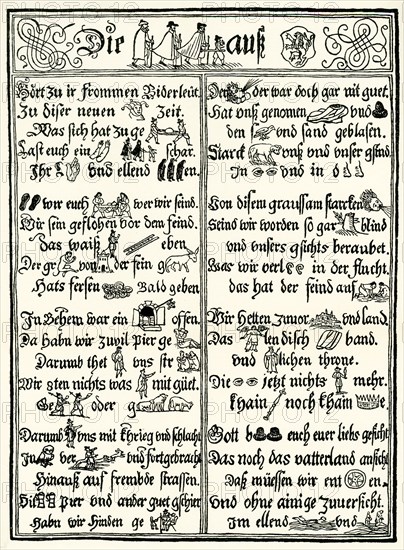 Die auß
Hört zu ir frommen Biderleüt.
Zu diser neuen Zeit.
Was sich hat zu ge
Last euch ein schar.
Ihr und ellend en.
wor euch wer wir seind.
Wir sein geflohen vor dem feind.
das waiß eben
Der gr von der fein g
Hats fersen Bald geben
In Behem war ein offen.
Da habn wir zuvil Pier ge
Darumb thet uns str
Wir sten nichts was mit güet.
Ge oder g
Darumb uns mit khrieg und schlacht
In ver und fortgebracht
Hinauß auf frembde strassen.
Pier und ander guet gschier
Habn wir Hinden ge
der war doch gar nit guet.
Hat unß genomen und
den und sand geblasen.
Starck unß und unser gsind.
In und in
Von disem graussam starcken
Seind wir worden so gar blind
und unsers gsichts beraubet.
Was wir verl in der flucht.
das hat der feind auf
Wir hetten zuvor und land.
Das len disch band.
und lichen throne.
Die jetzt nichts mehr.
khain noch kham
Gott b euch euer liebs gesicht
Das noch das vatterland ansicht
Daß müessen wir ent en.
und ohne ainige zuversicht.
Im ellend und